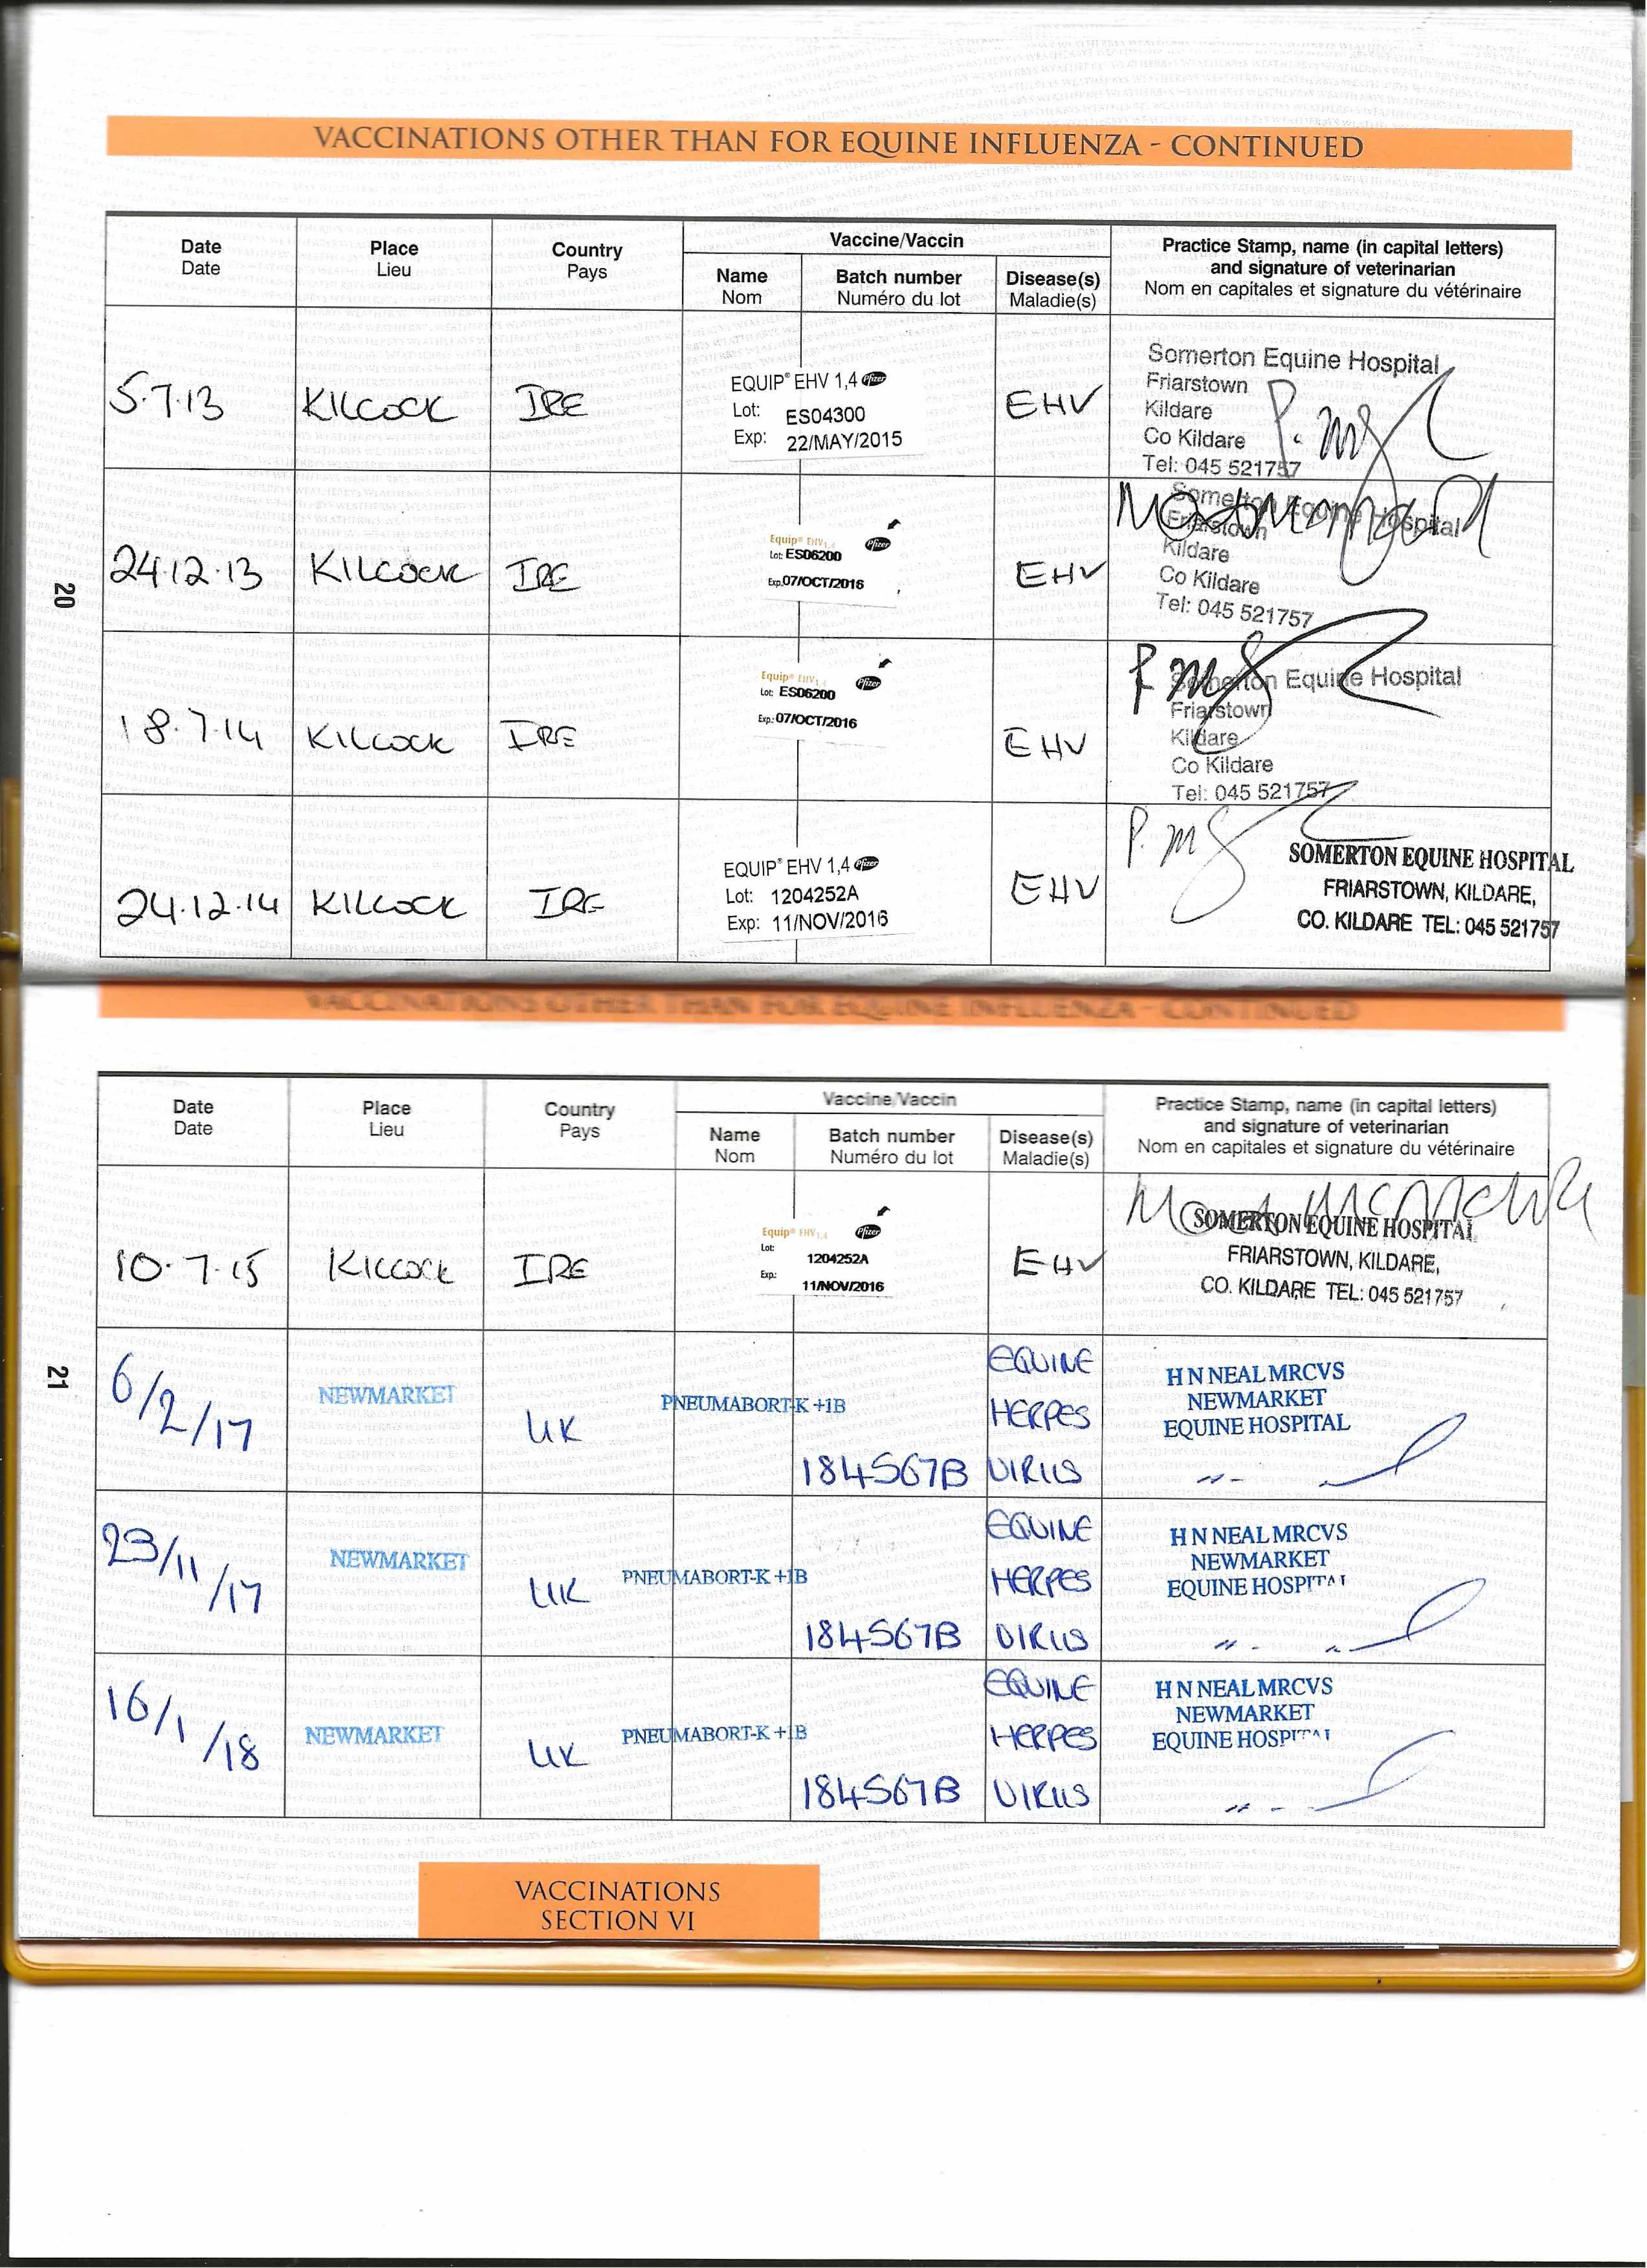 VACCINATIONS OTHER THAN FOR EQUINE INFLUENZA - CONTINUED
Date
Date
Place
Lieu
Country
Pays
Vaccine/Vaccin
Name
Nom
Batch number
Numéro du lot
Disease(s)
Maladie(s)
Practice Stamp, name (in capital letters)
and signature of veterinarian
Nom en capitales et signature du vétérinaire
5.7.13
KILCOCK
IRE
EQUIP® EHV 1,4 Pfizer
Lot: ES04300
Exp: 22/MAY/2015
EHV
Somerton Equine Hospital
Friarstown
Kildare
Co Kildare
Tel: 045 521757
24.12.13
KILCOCK
IRE
Equip® EHV1,4 Pfizer
Lot: ES06200
Exp.07/OCT/2016
EHV
Somerton Equine Hospital
Friarstown
Kildare
Co Kildare
Tel: 045 521757
18.7.14
KILCOCK
IRE
Equip® EHV1,4 Pfizer
Lot: ES06200
Exp.: 07/OCT/2016
EHV
Somerton Equine Hospital
Friarstown
Kildare
Co Kildare
Tel: 045 521757
24.12.14
KILCOCK
IRE
EQUIP® EHV 1,4 Pfizer
Lot: 1204252A
Exp: 11/NOV/2016
EHV
SOMERTON EQUINE HOSPITAL
FRIARSTOWN, KILDARE,
CO. KILDARE TEL: 045 521757
20
VACCINATIONS OTHER THAN FOR EQUINE INFLUENZA - CONTINUED
Date
Date
Place
Lieu
Country
Pays
Vaccine/Vaccin
Name
Nom
Batch number
Numéro du lot
Disease(s)
Maladie(s)
Practice Stamp, name (in capital letters)
and signature of veterinarian
Nom en capitales et signature du vétérinaire
10.7.15
KILCOCK
IRE
Equip® EHV1,4 Pfizer
Lot: 1204252A
Exp.: 11/NOV/2016
EHV
SOMERTON EQUINE HOSPITAL
FRIARSTOWN, KILDARE,
CO. KILDARE TEL: 045 521757
6/2/17
NEWMARKET
UK
PNEUMABORT-K +1B
184567B
EQUINE
HERPES
VIRUS
H N NEAL MRCVS
NEWMARKET
EQUINE HOSPITAL
23/11/17
NEWMARKET
UK
PNEUMABORT-K +1B
184567B
EQUINE
HERPES
VIRUS
H N NEAL MRCVS
NEWMARKET
EQUINE HOSPITAL
16/1/18
NEWMARKET
UK
PNEUMABORT-K +1B
184567B
EQUINE
HERPES
VIRUS
H N NEAL MRCVS
NEWMARKET
EQUINE HOSPITAL
21
VACCINATIONS
SECTION VI